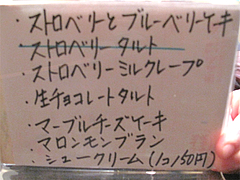 ・ストロベリーとブルーベリーケーキ
・ストロベリータルト
・ストロベリーミルクレープ
・生チョコレートタルト
・マーブルチーズケーキ
・マロンモンブラン
・シュークリーム(1コ150円)